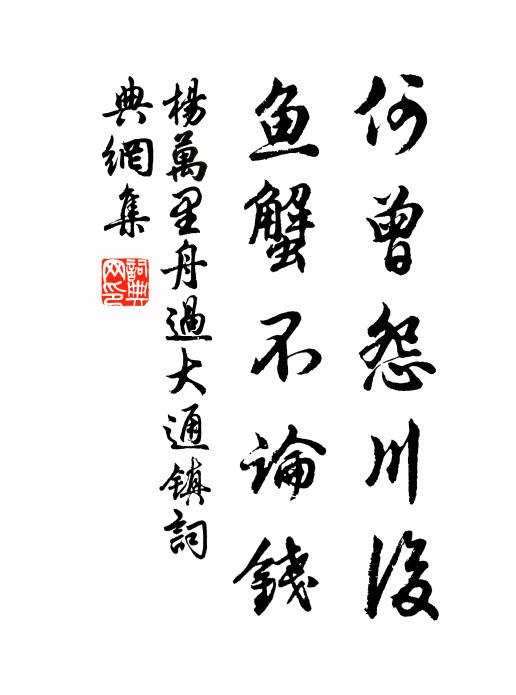 何曾怨川後
鱼蟹不論錢
楊萬里舟過大通鎮詞
典網集
詞典
网印